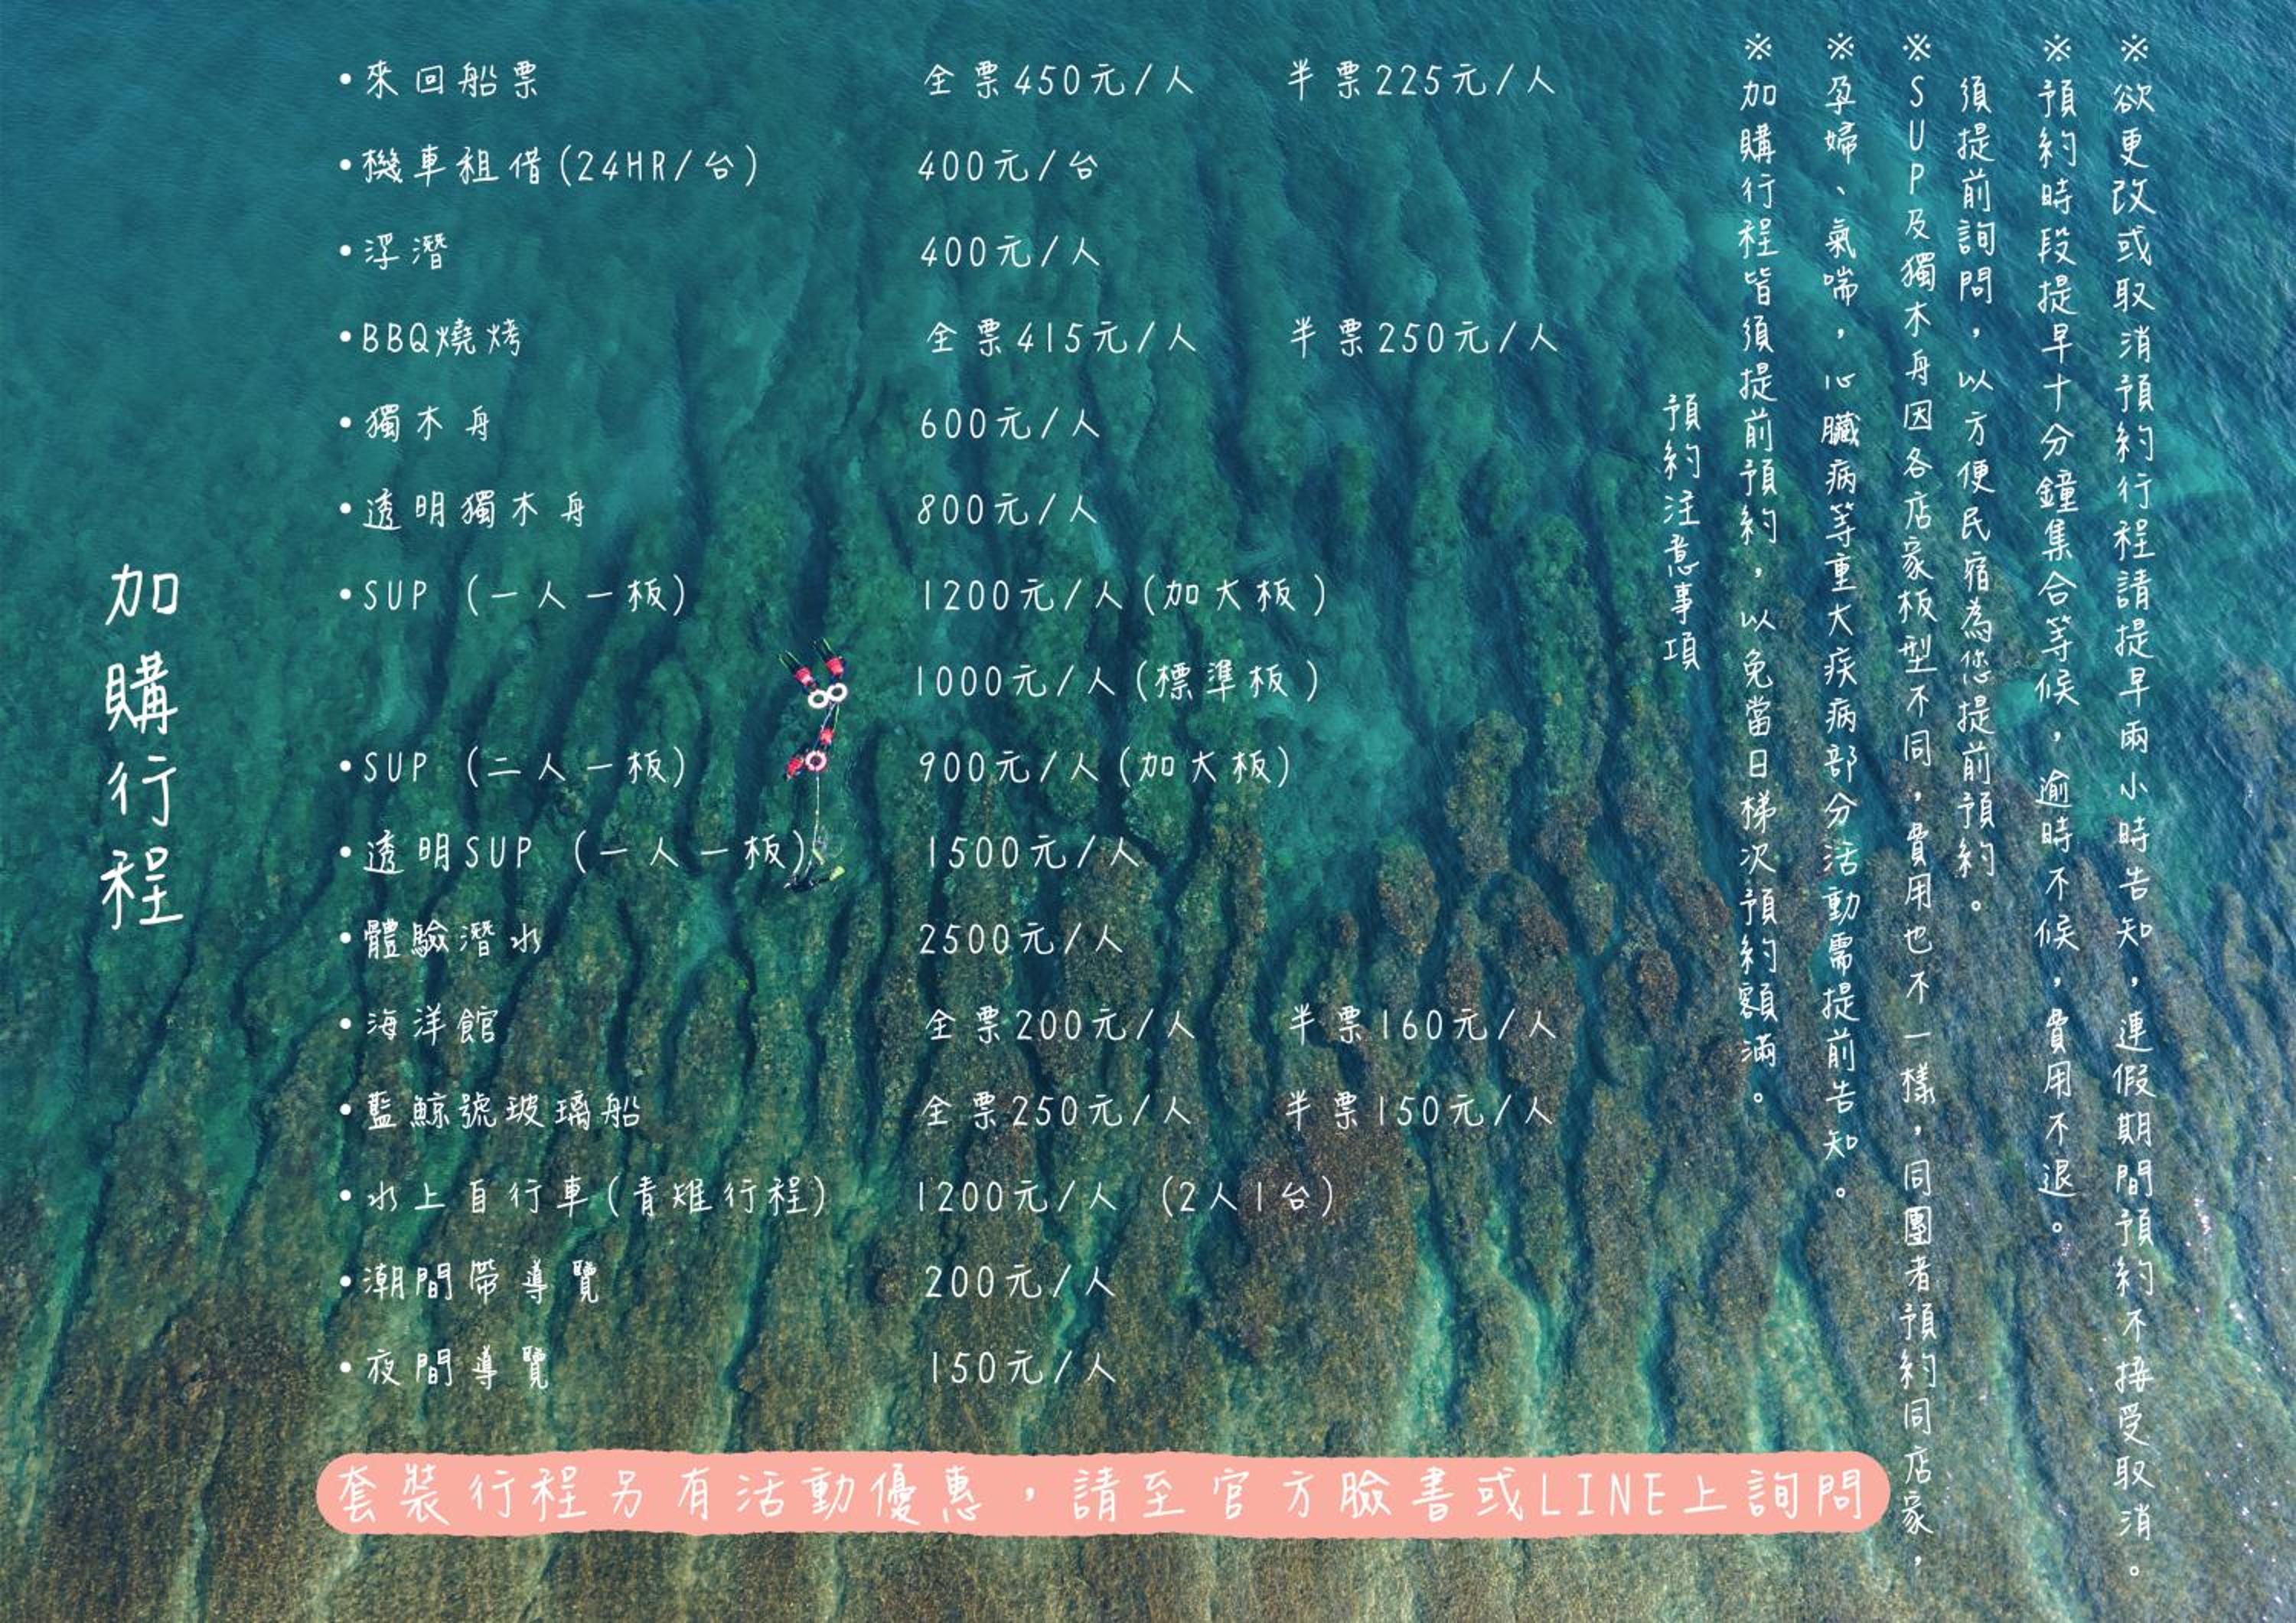 加購行程
•來回船票 全票450元/人 半票225元/人
•機車租借(24HR/台) 400元/台
•浮潛 400元/人
•BBQ燒烤 全票415元/人 半票250元/人
•獨木舟 600元/人
•透明獨木舟 800元/人
•SUP (一人一板) 1200元/人(加大板)
1000元/人(標準板)
•SUP (二人一板) 900元/人(加大板)
•透明SUP (一人一板) 1500元/人
•體驗潛水 2500元/人
•海洋館 全票200元/人 半票160元/人
•藍鯨號玻璃船 全票250元/人 半票150元/人
•水上自行車(青雉行程) 1200元/人 (2人1台)
•潮間帶導覽 200元/人
•夜間導覽 150元/人
套裝行程另有活動優惠，請至官方臉書或LINE上詢問
預約注意事項
※加購行程皆須提前預約，以免當日梯次預約額滿。
※孕婦、氣喘，心臟病等重大疾病部分活動需提前告知。
※SUP及獨木舟因各店家板型不同，費用也不一樣，同團者預約同店家，
須提前詢問，以方便民宿為您提前預約。
※預約時段提早十分鐘集合等候，逾時不候，費用不退。
※欲更改或取消預約行程請提早兩小時告知，連假期間預約不接受取消。